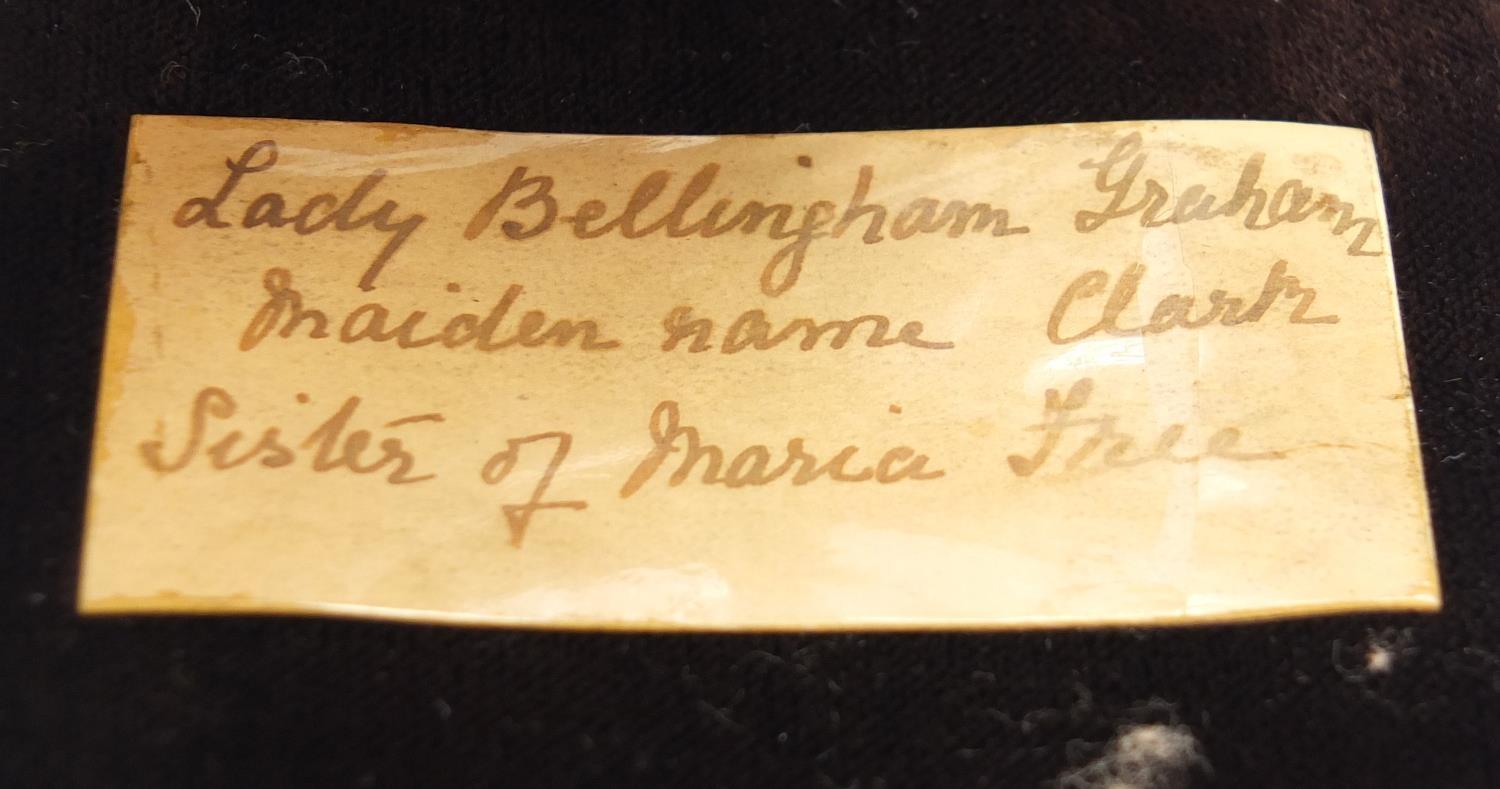 Lady Bellingham Graham
Maiden name Clark
Sister of Maria Tree